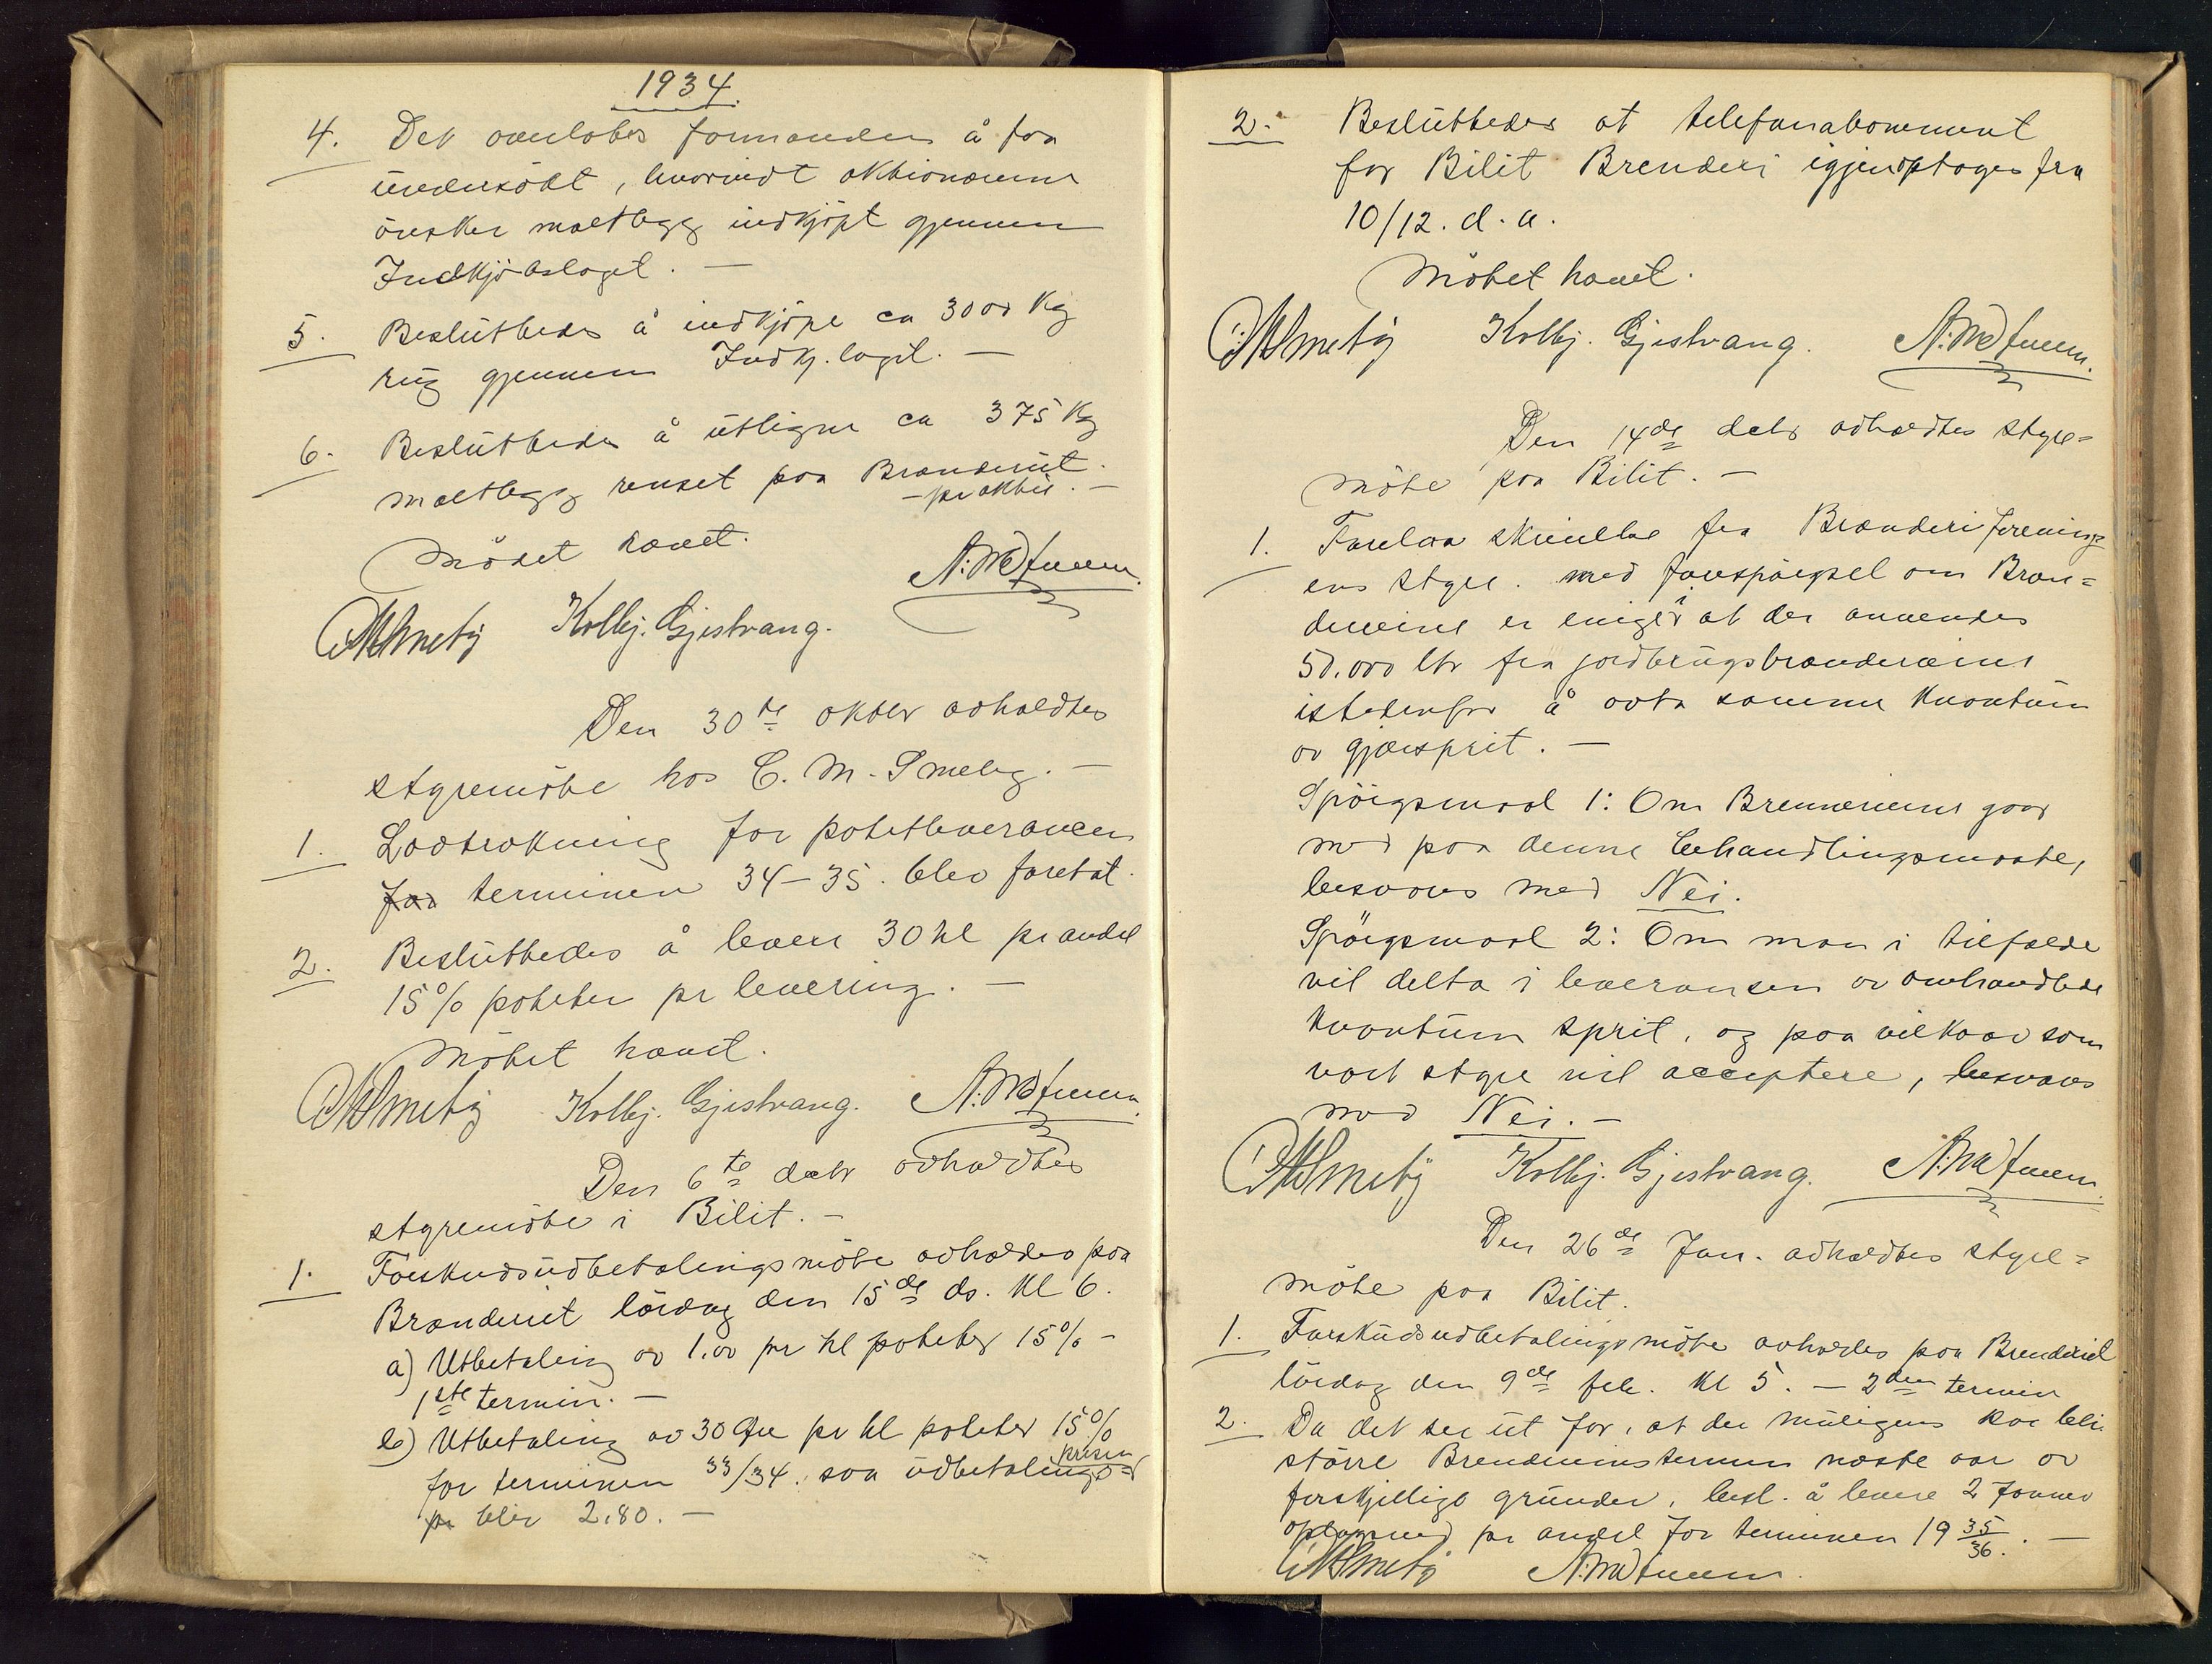 1934.
4. Det overlates formanden å faa
undersökt, hvorvidt aktionærerne
önsker maltbygg indkjöpt gjennem
Indkjöbslaget. —
5. Besluttedes å indkjöpe ca 3000 Kg
rug gjennem Indkj. laget. —
6. Besluttedes å utligne ca 375 Kg
maltbygg renset paa Brænderiet.
– pr aktie. –
Mötet hævet.
CMSmeby Kolbj. Gjestvang.
Den 30te oktbr avholdtes
styremöte hos C. M. Smeby. —
1. Lodtrekning for potetleverancen
for terminen 34–35. blev foretat.
2. Besluttedes å levere 30 hl pr andel
15% poteter pr levering. —
Mötet hævet.
CMSmeby Kolbj. Gjestvang.
Den 6te debr avholdtes
styremöte i Bilit. –
1. Forskudsudbetalingsmöte avholdes paa
Brænderiet lördag den 15de ds. Kl 6.
a) Utbetaling av 1.00 pr hl poteter 15% –
1ste termin. —
b) Utbetaling av 30 Öre pr hl poteter 15%
for terminen 33/34. saa udbetalings=
prisen
pr blir 2.80. —
2. Besluttedes at telefonabonnement
for Bilit Brenderi igjenoptages fra
10/12. d. a.
Mötet hævet.
CMSmeby Kolbj. Gjestvang.
Den 14de debr avholdtes styre=
möte paa Bilit. —
1. Forelaa skrivelse fra Brænderiforening-
ens styre. med forespörgsel om Bræn=
deriene er enige i at der anvendes
50.000 ltr fra jordbrugsbrænderierne
istedenfor å avta samme kvantum
av gjærsprit. —
Spörgsmaal 1: Om Brennerierne gaar
med paa denne behandlingsmaate,
besvares med Nei.
Spörgsmaal 2: Om man i tilfælde
vil delta i leveransen av omhandlede
kvantum sprit, og paa vilkaar som
vort styre vil acceptere, besvares
med Nei. –
CMSmeby Kolbj. Gjestvang.
Den 26de Jan. avholdtes styre=
möte paa Bilit.
1. Forskudsudbetalingsmöte avholdes paa Brenderiet
lördag den 9de feb. Kl 5. — 2den termin
2. Da det ser ut for, at der muligens kan bli
större Brenderitermin næste aar av
forskjellige grunder, besl. å levere 2 Favner
pr andel for terminen 19 35/36. —
CMSmeby